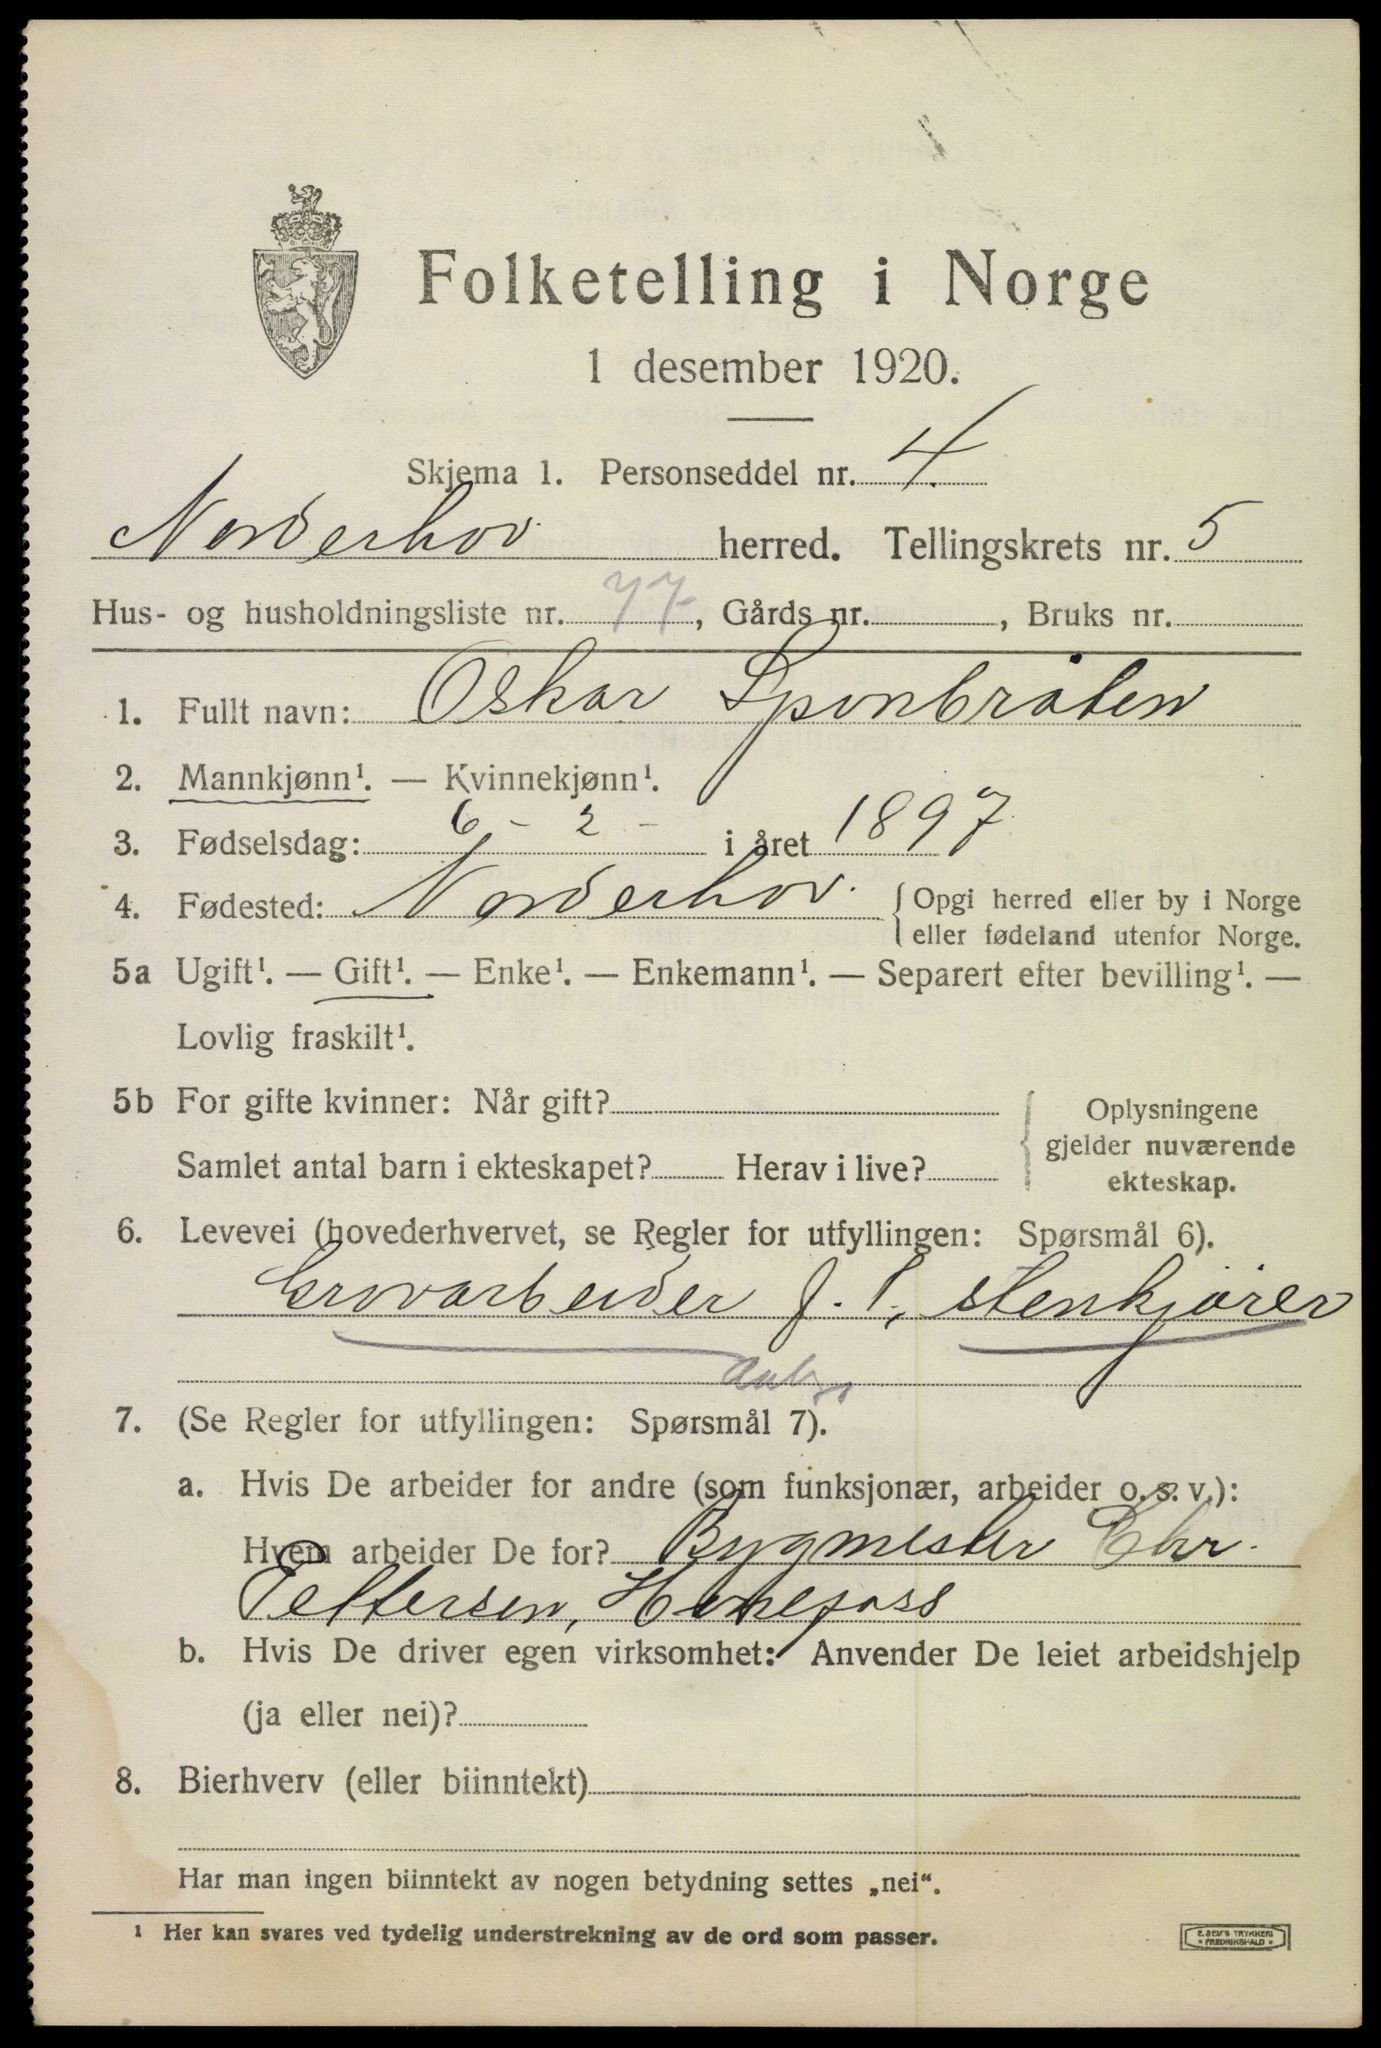 Folketelling i Norge
1 desember 1920.
Skjema 1. Personseddel nr. 4.
Norderhov herred. Tellingskrets nr. 5
Hus- og husholdningsliste nr. 77, Gårds nr. , Bruks nr.
1. Fullt navn: Oskar Sponbråten
2. Mannkjønn¹. — Kvinnekjønn¹.
3. Fødselsdag: 6 - 2 - i året 1897
4. Fødested: Norderhov. { Opgi herred eller by i Norge
eller fødeland utenfor Norge.
5a Ugift¹. — Gift¹. — Enke¹. — Enkemann¹. — Separert efter bevilling¹. —
Lovlig fraskilt¹.
5b For gifte kvinner: Når gift? { Oplysningene
gjelder nuværende
Samlet antal barn i ekteskapet? Herav i live?
ekteskap.
6. Levevei (hovederhvervet, se Regler for utfyllingen: Spørsmål 6).
Grovarbeider f. t. stenkjører
7. (Se Regler for utfyllingen: Spørsmål 7).
a. Hvis De arbeider for andre (som funksjonær, arbeider o. s. v.):
Hvem arbeider De for? Bygmester Chr.
Pettersen, Hønefoss
b. Hvis De driver egen virksomhet: Anvender De leiet arbeidshjelp
(ja eller nei)?
8. Bierhverv (eller biinntekt)
Har man ingen biinntekt av nogen betydning settes „nei“.
¹ Her kan svares ved tydelig understrekning av de ord som passer.
E. SEM'S TRYKKERI
• FREDRIKSHALD •